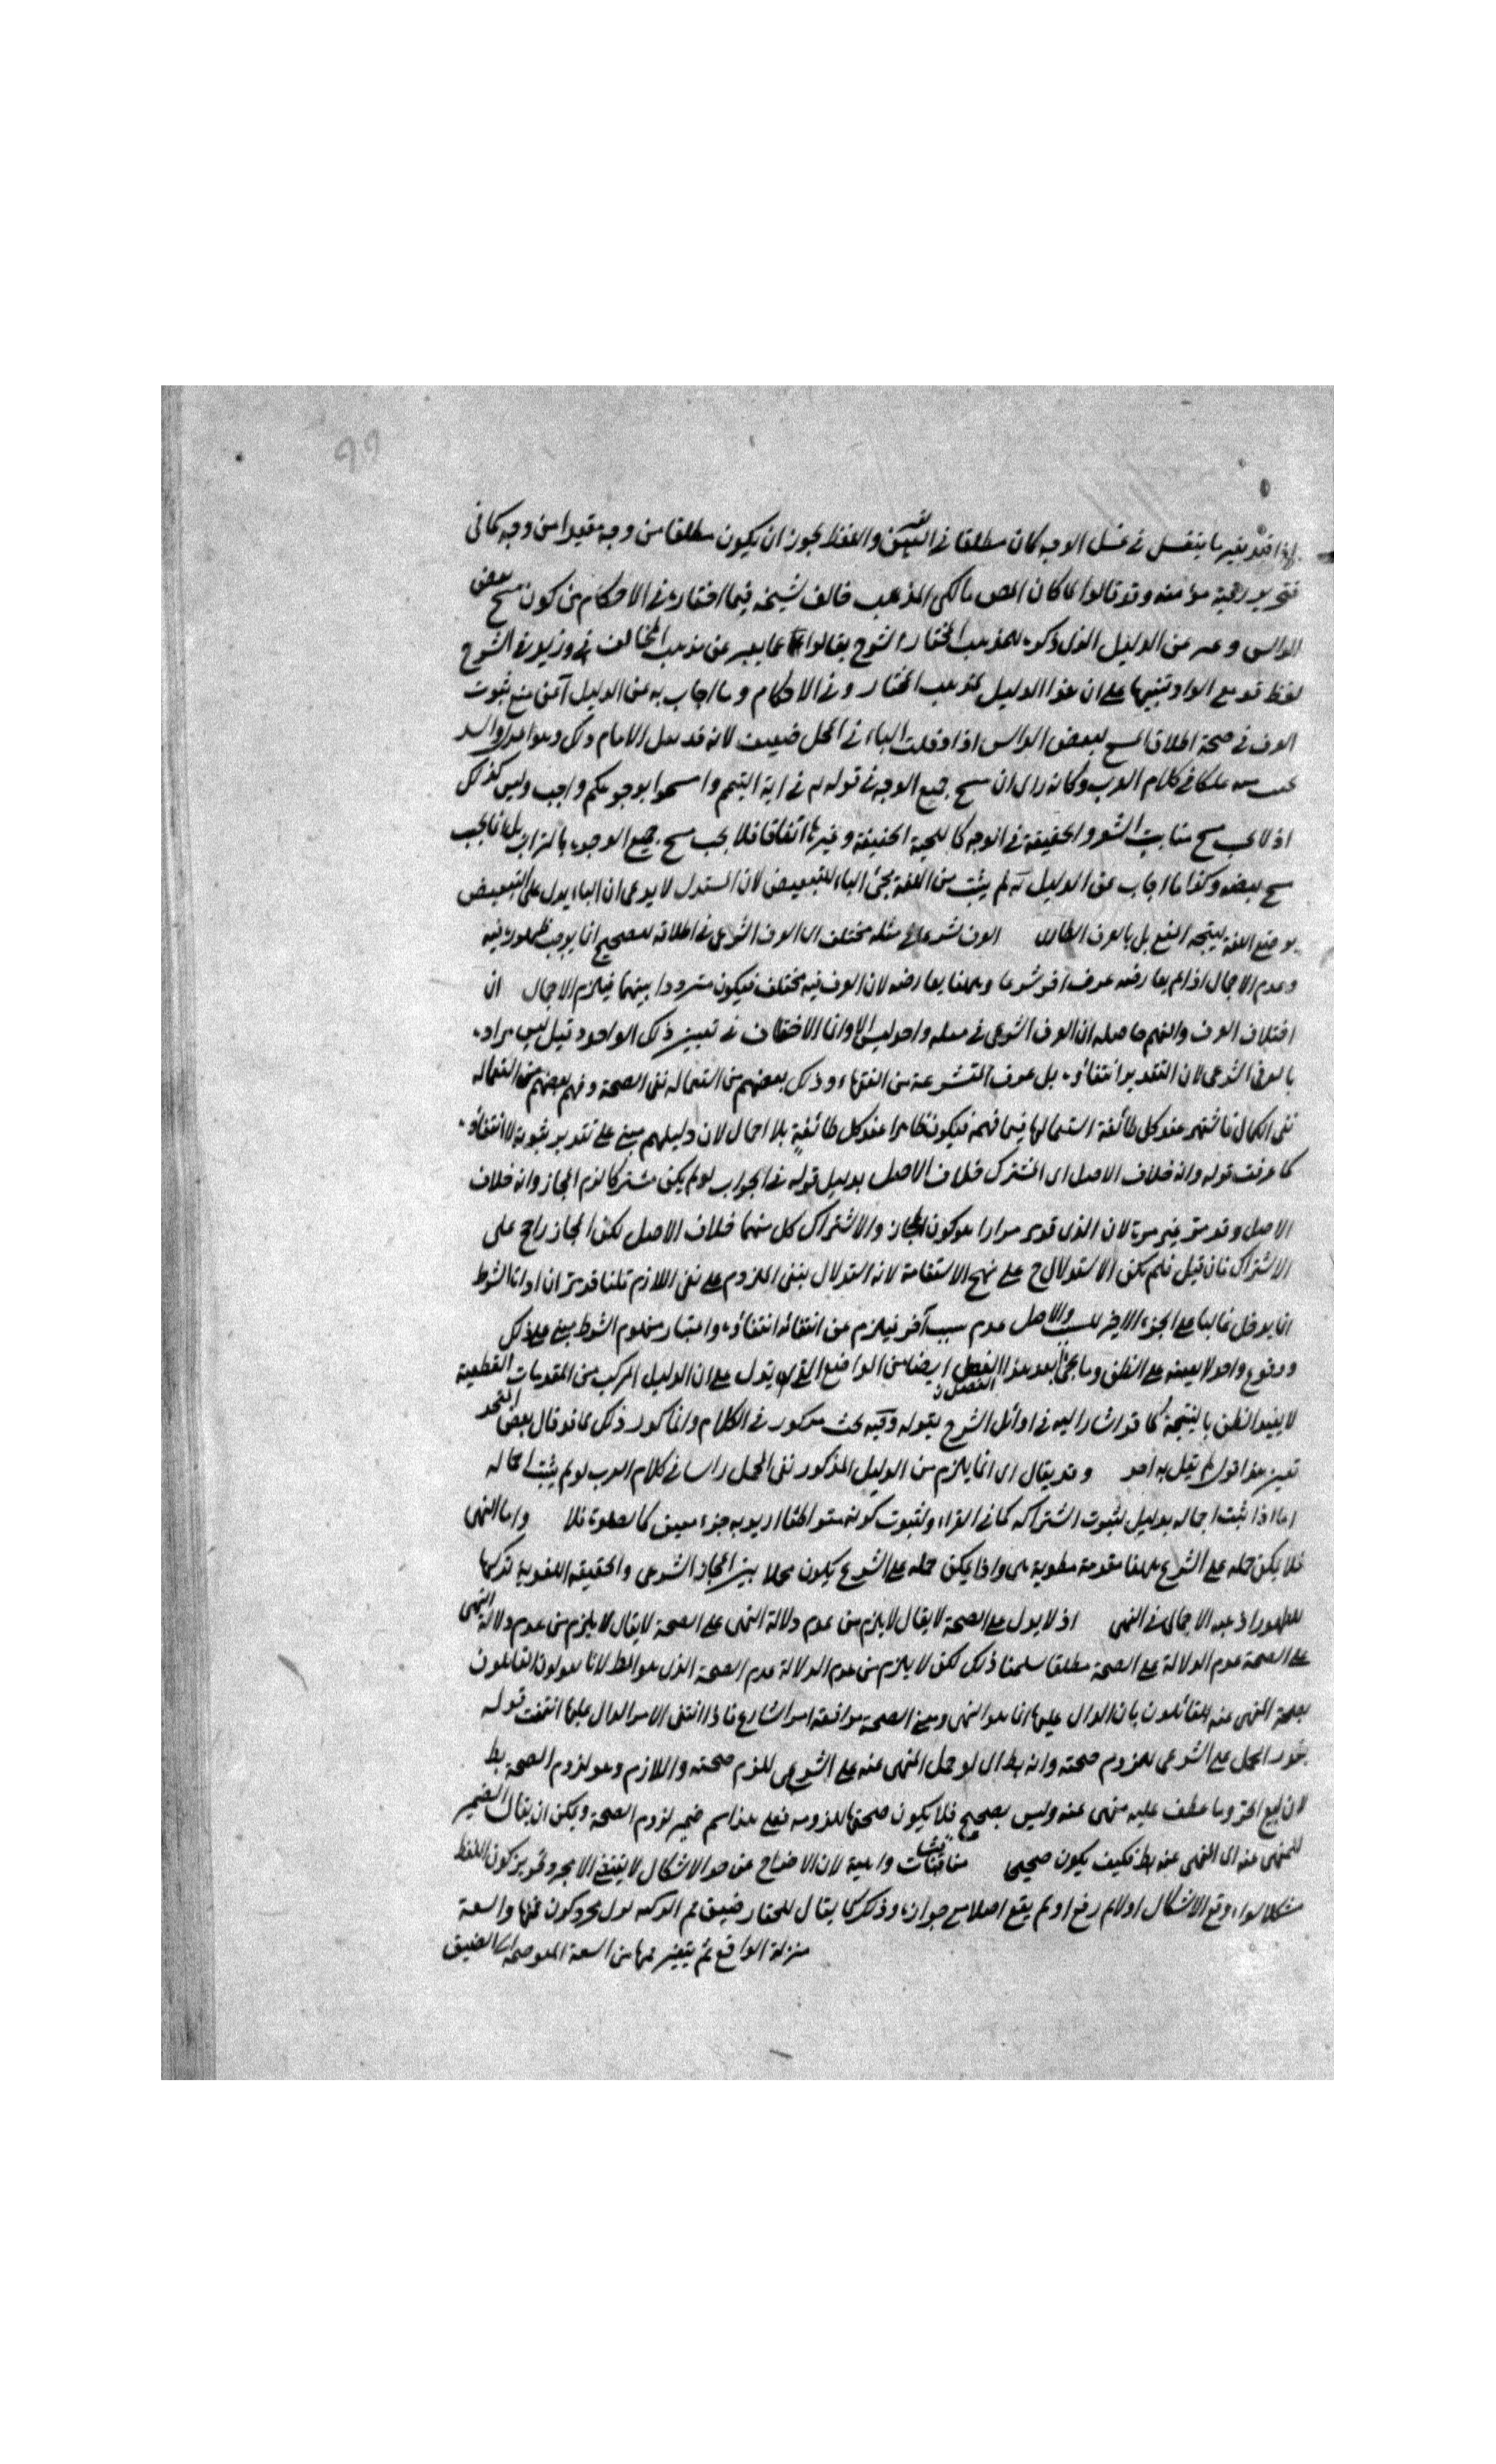 لهذا قيد بغير ما يتغسل في غسل الوجه كان مطلقا في اليدين واللفظ يجوز ان يكون مطلقا من وجه مقيدا من وجه كما في
تحرير رقبة مؤمنة وقد قالوا لما كان المص مالكي المذهب خالف شيخه فيما اختاره في الاحكام من كون مسح بعض
الراس وعبر عن الدليل الذي ذكره للمذهب المختار الشرح بقالوا كما يعبر عن مذهب المخالف وزيد في الشرح
لفظ قد مع الواو تنبيها على ان هذا الدليل لمذهب المختار في الاحكام وما اجاب به عن الدليل آعنى منع ثبوت
العرف في صحة اطلاق المسح لبعض الراس اذا دخلت الباء في المحل ضعيف لانه قد نقل الامام ذلك وهو
في كلام العرب وكانه راى ان مسح جميع الوجه في قوله تع في اية التيمم وامسحوا بوجوهكم واجب وليس كذلك
اذ لا يجب مسح منابت الشعور الخفيفة في الوجه كاللحية الخفيفة وغيرها اتفاقا فلا يجب مسح جميع الوجوه بالتراب بل انما يجب
مسح بعضه وكذا ما اجاب عن الدليل انه لم يثبت من اللغة مجئ الباء للتبعيض لان المستدل لا يدعى ان الباء يدل على التبعيض
بوضع اللغة ليتجه المنع بل بالعرف الطارى العرف شرعا في مثله مختلف اى العرف الشرعى في اطلاقه للصحيح انما يوجب ظهوره فيه
وعدم الاجمال اذا لم يعارضه عرف اخر شرعا وههنا يعارضه لان العرف فيه مختلف فيكون مترددا بينهما فيلزم الاجمال ان
اختلاف العرف والفهم حاصله ان العرف الشرعى في مثله واحد ليس الا وانما الاختلاف في تعيين ذلك الواحد قيل ليس مراده
بالعرف الشرعى لان التقدير انتفاؤه بل عرف المتشرعة من الفقهاء وذلك بعضهم من استعماله نفى الصحة وفهم بعضهم من استعماله
نفى الكمال فاشتهر عند كل طائفة استعمالها فيما فهمه فيكون ظاهرا عند كل طائفة بلا اجمال لان دليلهم مبنى على تقدير ثبوته لا انتفاؤه
كما عرفت قوله وانه خلاف الاصل اى المشترك خلاف الاصل بدليل قوله في الجواب لو لم يكن مشتركا لزم المجاز وانه خلاف
الاصل وقد مر غير مرة لان الذى قدر مرارا هو كون المجاز والاشتراك كل منهما خلاف الاصل لكن المجاز راجح على
الاشتراك فان قيل فلم يكن الاستدلال ح على نهج الاستقامة لانه استدلال بنفى الملزوم على نفى اللازم قلنا قد مر ان اداة الشرط
انما يدخل غالبا على الجزء الاخير للسبب والاصل عدم سبب آخر فيلزم من انتفائه انتفاؤه واعتبار مفهوم الشرط مبنى على ذلك
ووقوع واحد لا بعينه على الظن وما يجئ بعد هذا الفصل ايضا من المواضع التى تدل على ان الدليل المركب من المقدمات القطعية
لا يفيد الظن بالنتيجة كما قد اشار اليه في اوائل الشرح بقوله وفيه بحث مذكور في الكلام وانما كرر ذلك
تعيين هذا قول لم يقل به احد وقد يقال اى انما يلزم من الدليل المذكور نفى المجمل راسا في كلام العرب لو لم يثبت اجماله
اما اذا ثبت اجماله بدليل لثبوت اشتراكه كما في القراء ولثبوت كونه متواطئا اريد به جزء معين كما فلا واما النهى
فلا يمكن حمله على الشرعى ههنا مقدمة مطوية هى واذا يمكن حمله على الشرعى يكون مجملا بين المجاز الشرعى والحقيقة اللغوية تركها
للظهور اذ هبه الاجمالى في النهى اذ لا يدل على الصحة لا يقال لا يلزم من عدم دلالة النهى على الصحة لا يقال لا يلزم من عدم دلالة النهى
على الصحة عدم الدلالة على الصحة مطلقا سلمنا ذلك لكن لا يلزم من عدم الدلالة عدم الصحة الذى هو المط لانا نقول القائلون
بصحة المنهى عنه القائلون بان الدال عليها انما هو النهى ومعنى الصحة موافقة امر الشارع فاذا انتفى الامر الدال عليها انتفت قوله
يجوز الحمل على الشرعى للزوم صحته وانه بط اى لو حمل المنهى عنه على الشرعى للزم صحته واللازم وهو لزوم الصحة بط
لان بيع الحر وما عطف عليه منهى عنه وليس بصحيح فلا يكون صحتها للزومه فعلى هذا اسم ضمير لزوم الصحة ويمكن ان يقال الضمير
للمنهى عنه اى المنهى عنه بط فكيف يكون صحيحا مناقشات واهية لان الاخراج عن حد الاشكال لا يقتضى الا مجرد تجويز كون اللفظ
مشكلا سواء وقع الاشكال اولا ثم رفع او لم يقع اصلا مع جوازه وذلك كما يقال للحفار ضيق فم الركية نزل مجرد كون فمها واسعة
منزلة الواقع ثم يتغير فمها من السعة المفروضة الى الضيق